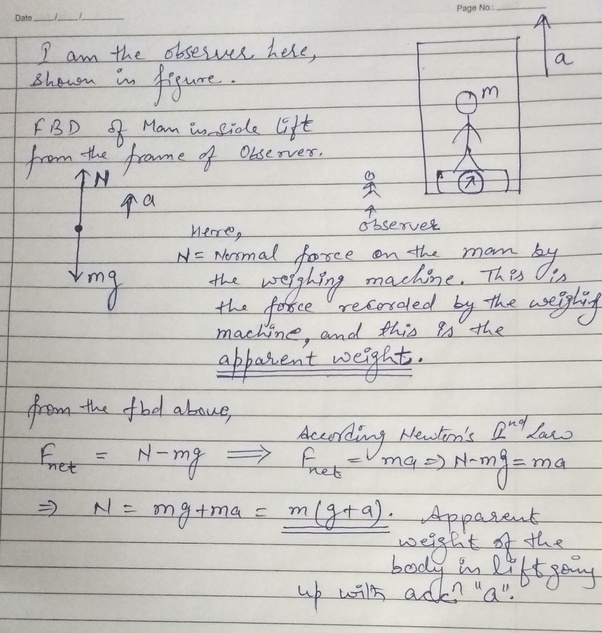 Date ___/___/___
Page No.:
I am the observer here,
shown in figure.
a
m
FBD of Man inside lift
from the frame of Observer.
N
a
mg
observer
Here,
N = Normal force on the man by
the weighing machine. This is
the force recorded by the weighing
machine, and this is the
apparent weight.
from the fbd above,
According Newton's IInd Law
Fnet = N-mg ⟹ Fnet = ma ⇒ N-mg = ma
⇒ N = mg+ma = m(g+a). Apparent
weight of the
body in lift going
up with accn "a".